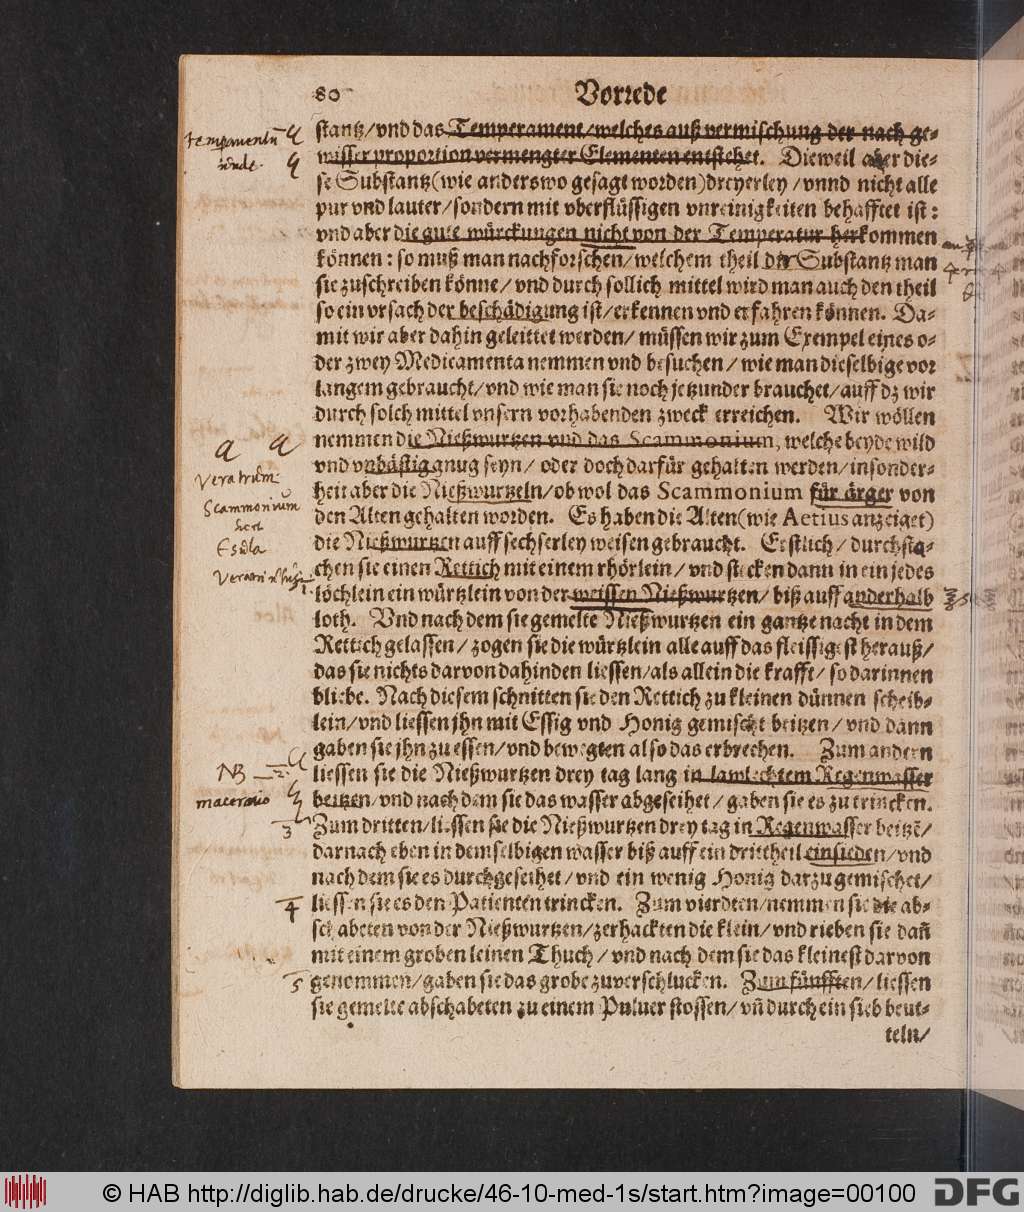 80
Vorrede
stantz/vnd das Temperament/welches auß vermischung der nach ge-
wisser proportion vermengter Elementen entstehet. Dieweil aber die-
se Substantz(wie anderswo gesagt worden)dreyerley/vnnd nicht alle
pur vnd lauter/sondern mit vberflüssigen vnreinigkeiten behafftet ist:
vnd aber die gute würckungen nicht von der Temperatur herkommen
können: so muß man nachforschen/welchem theil der Substantz man
sie zuschreiben könne/vnd durch sollich mittel wird man auch den theil
so ein vrsach der beschädigung ist/erkennen vnd erfahren können. Da-
mit wir aber dahin geleittet werden/müssen wir zum Exempel eines o-
der zwey Medicamenta nemmen vnd besuchen/wie man dieselbige vor
langem gebraucht/vnd wie man sie noch jetzunder brauchet/auff dz wir
durch solch mittel vnsern vorhabenden zweck erreichen. Wir wöllen
nemmen die Nießwurtzen vnd das Scammonium, welche beyde wild
vnd vnbästig gnug seyn/oder doch darfür gehalten werden/insonder-
heit aber die Nießwurtzeln/ob wol das Scammonium für ärger von
den Alten gehalten worden. Es haben die Alten(wie Aetius anzeiget)
die Nießwurtzen auff sechserley weisen gebraucht. Erstlich/durchsta-
chen sie einen Rettich mit einem rhörlein/vnd stecken dann in ein jedes
löchlein ein würtzlein von der weissen Nießwurtzen/biß auff anderhalb
loth. Vnd nach dem sie gemelte Nießwurtzen ein gantze nacht in dem
Rettich gelassen/zogen sie die würtzlein alle auff das fleissigest herauß/
das sie nichts darvon dahinden liessen/als allein die krafft/so darinnen
bliebe. Nach diesem schnitten sie den Rettich zu kleinen dünnen scheib-
lein/vnd liessen jhn mit Essig vnd Honig gemischt beitzen/vnd dann
gaben sie jhn zu essen/vnd bewegten also das erbrechen. Zum andern
liessen sie die Nießwurtzen drey tag lang in lawlechtem Regenwasser
beitzen/vnd nach dem sie das wasser abgeseihet/gaben sie es zu trincken.
Zum dritten/liessen sie die Nießwurtzen drey tag in Regenwasser beitzē/
darnach eben in demselbigen wasser biß auff ein drittheil einsieden/vnd
nach dem sie es durchgeseihet/vnd ein wenig Honig darzu gemischet/
liessen sie es den Patienten trincken. Zum vierdten/nemmen sie die ab-
schabeten von der Nießwurtzen/zerhackten die klein/vnd rieben sie dañ
mit einem groben leinen Thuch/vnd nach dem sie das kleinest darvon
genommen/gaben sie das grobe zuverschlucken. Zum fünfften/liessen
sie gemelte abschabeten zu einem Puluer stossen/vñ durch ein sieb beut-
teln/
a a
Veratrum
Scammonium
Esula
NB
2
maceratio
3
4
5
© HAB http://diglib.hab.de/drucke/46-10-med-1s/start.htm?image=00100
DFG